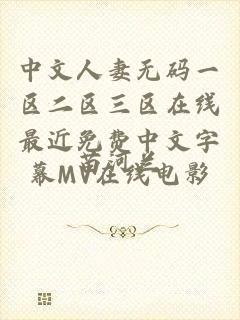 中文人妻无码一
区二区三区在线
最近免费中文字
幕MV在线电影